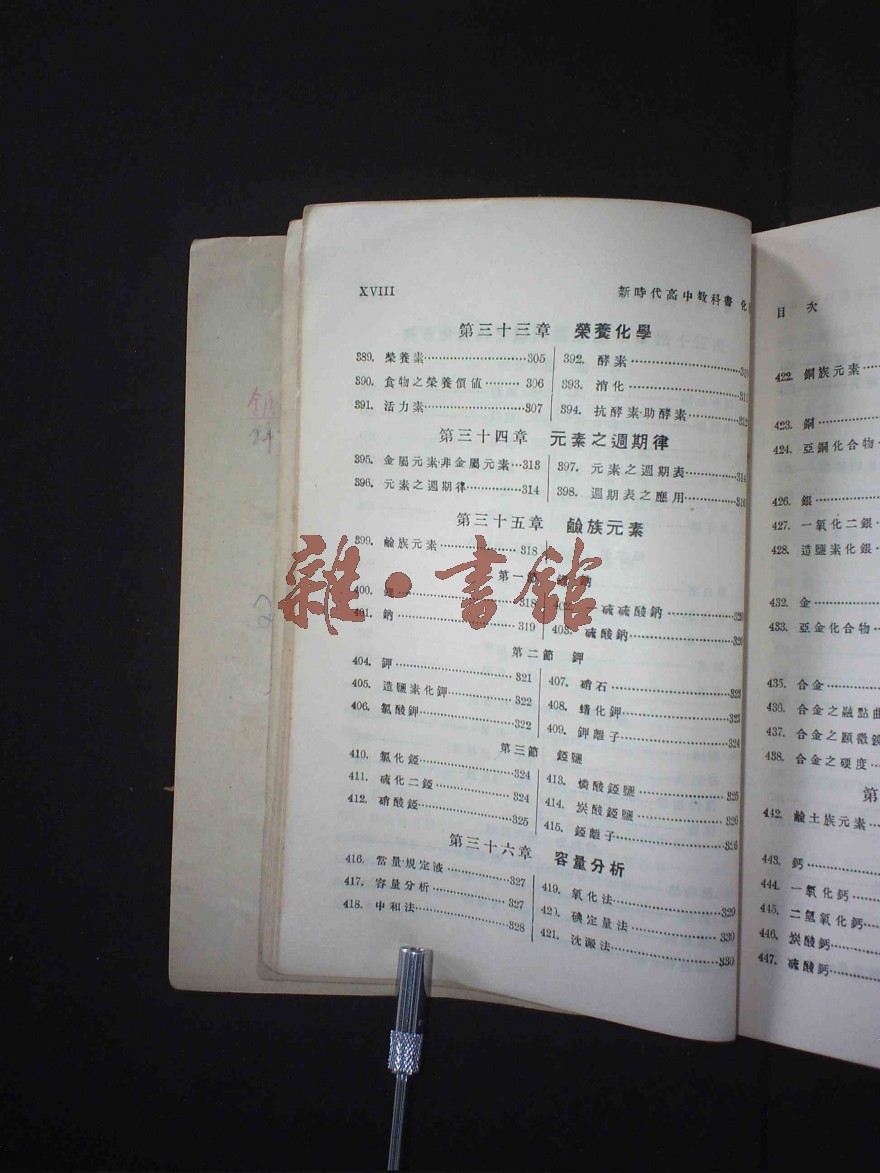 XVIII
新時代高中敎科書 化
第三十三章 榮養化學
389. 榮養素……305
390. 食物之榮養價値……306
391. 活力素……307
392. 酵素……
393. 消化……
394. 抗酵素·助酵素……312
第三十四章 元素之週期律
395. 金屬元素·非金屬元素…313
396. 元素之週期律……314
397. 元素之週期表……314
398. 週期表之應用……316
第三十五章 鹼族元素
399. 鹼族元素……318
第一節 鈉
400. ……318
401. 鈉……319
402. 硫硫酸鈉……320
403. 硫酸鈉……320
第二節 鉀
404. 鉀……321
405. 造鹽素化鉀……322
406. 氯酸鉀……322
407. 硝石……323
408. 蜻化鉀……323
409. 鉀離子……324
第三節 銨鹽
410. 氯化銨……324
411. 硫化二銨……324
412. 硝酸銨……325
413. 燐酸銨鹽……325
414. 炭酸銨鹽……326
415. 銨離子……326
第三十六章 容量分析
416. 當量·規定液……327
417. 容量分析……327
418. 中和法……328
419. 氧化法……329
420. 碘定量法……330
421. 沈澱法……330
目 次
422. 銅族元素……
423. 銅……
424. 亞銅化合物·
426. 銀……
427. 一氧化二銀·
428. 造鹽素化銀·
432. 金……
433. 亞金化合物·
435. 合金……
436. 合金之融點曲
437. 合金之顯微鏡
438. 合金之硬度·
第
442. 鹼土族元素·
443. 鈣……
444. 一氧化鈣…
445. 二氫氧化鈣·
446. 炭酸鈣…
447. 硫酸鈣…
雜·書館